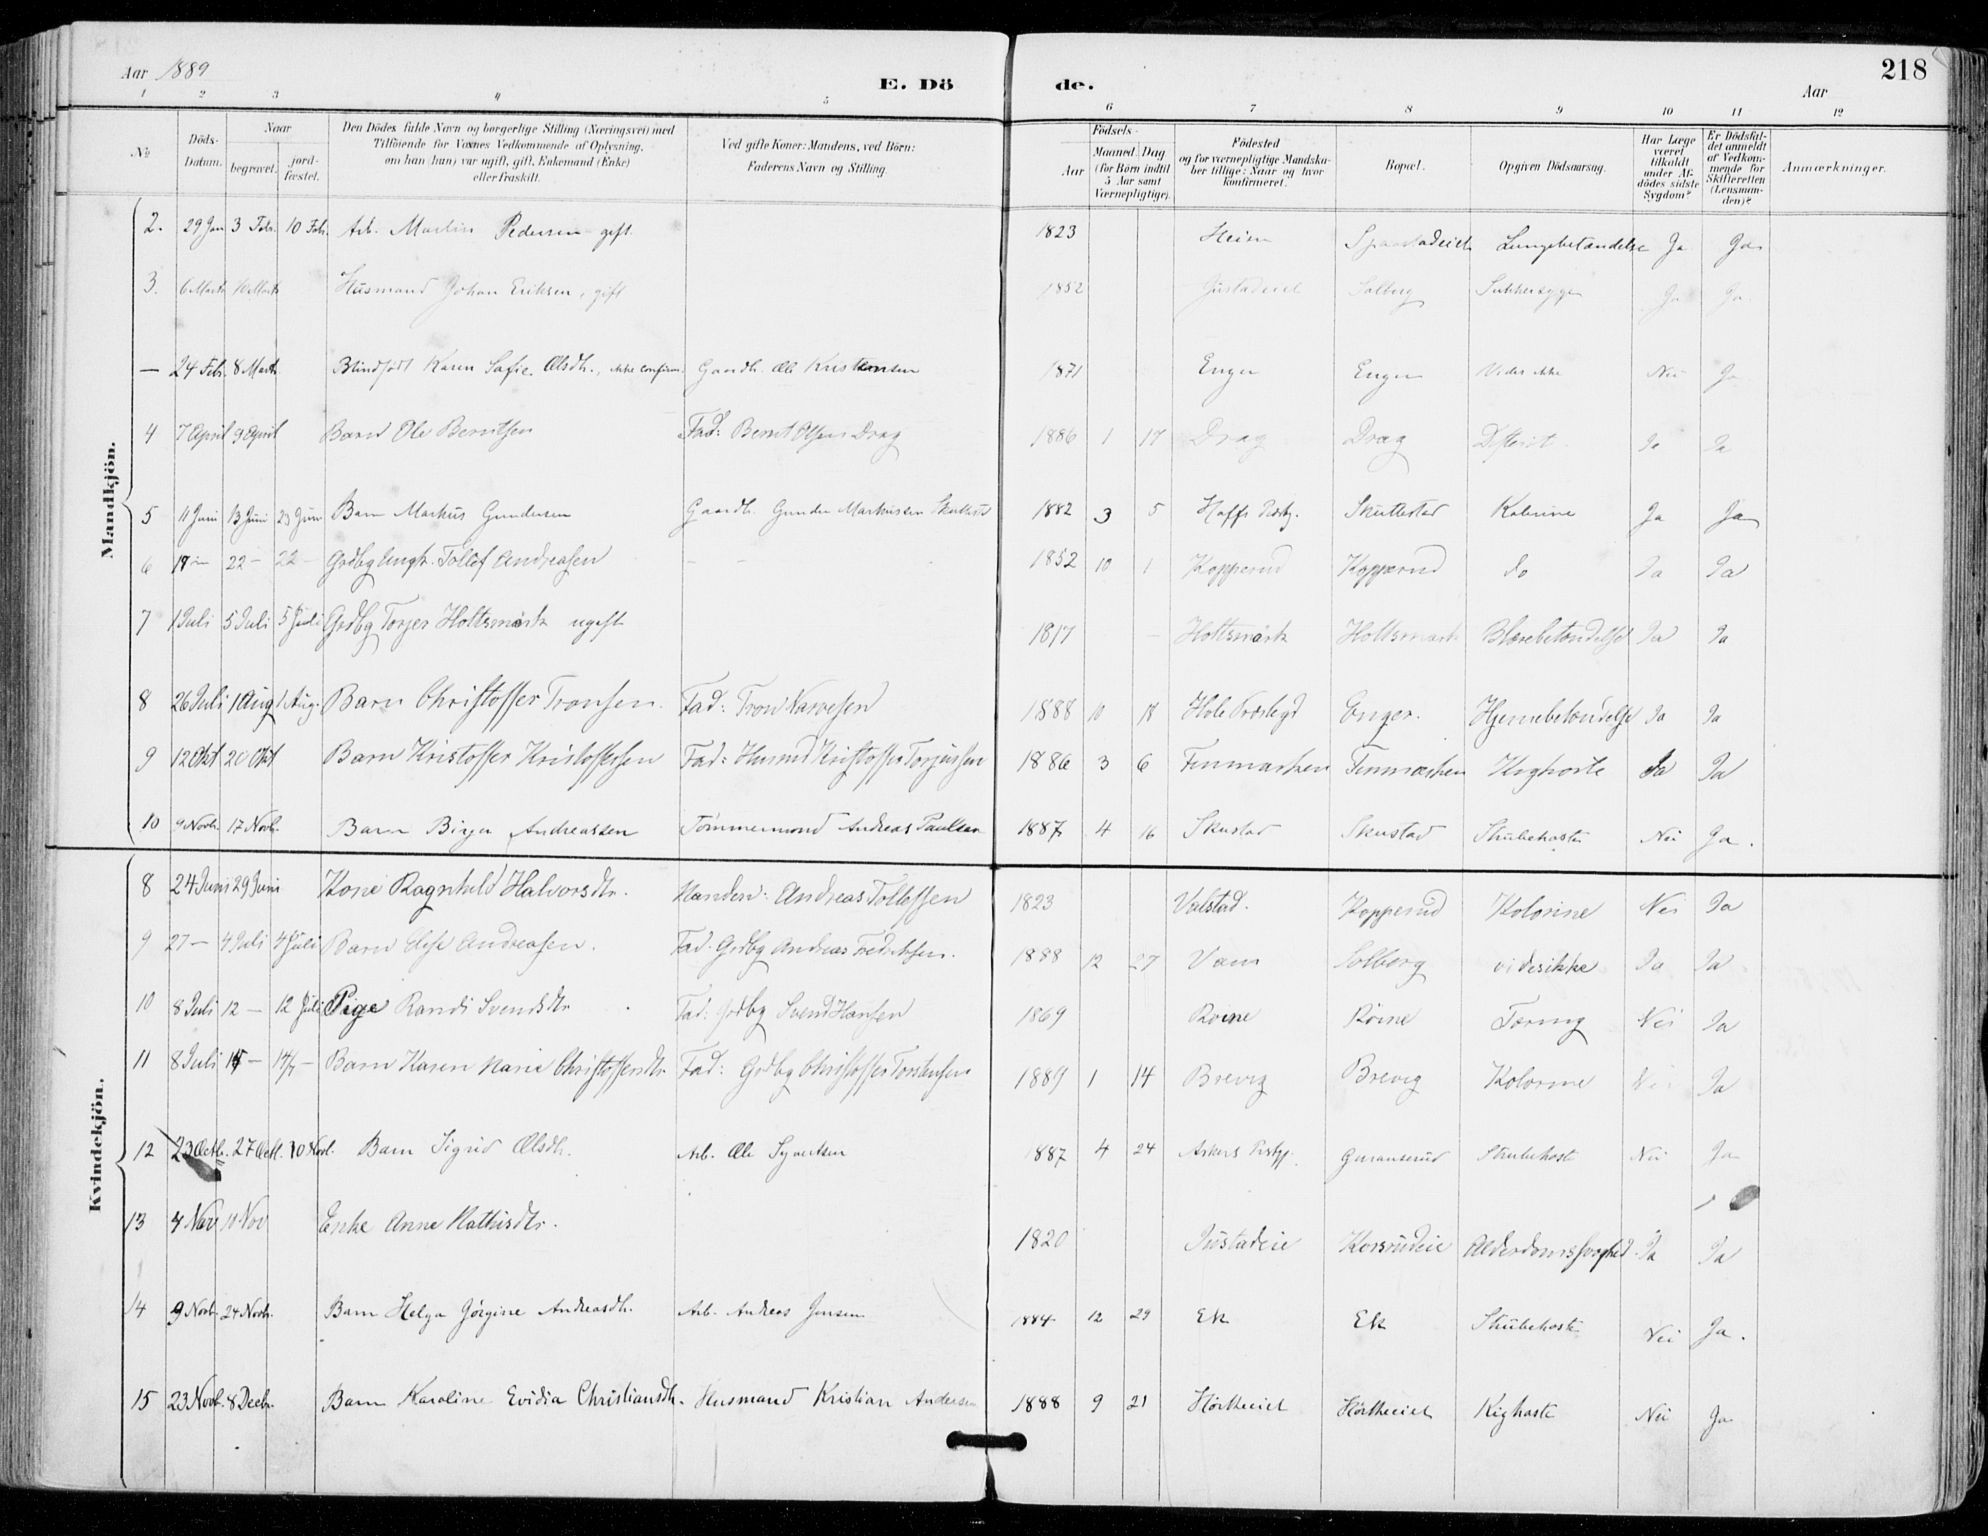 Aar 1889
E. Döde.
Aar
218
1 2 3 4 5 6 7 8 9 10 11 12
№
Döds-Datum.
Naar
begravet.
jord-fæstet.
Den Dödes fulde Navn og borgerlige Stilling (Næringsvei) med Tilföiende for Voxnes Vedkommende af Oplysning, om han (hun) var ugift, gift, Enkemand (Enke) eller fraskilt.
Ved gifte Koner: Mandens, ved Börn: Faderens Navn og Stilling.
Födsels-
Aar
Maaned. Dag
(for Börn indtil 5 Aar samt Værnepligtige).
Födested og for værnepligtige Mandskaber tillige: Naar og hvor konfirmeret.
Bopæl.
Opgiven Dödsaarsag.
Har Læge været tilkaldt under Afdödes sidste Sygdom?
Er Dödsfaldet anmeldt af Vedkommende for Skifteretten (Lensmanden)?
Anmærkninger.
Mandkjön.
2. 29 Jan 3 Febr. 10 Febr. Arb. Martin Pedersen gift. 1823 Heien Lungebetændelse Ja Ja
3. 6 Marts 16 Marts Husmand Johan Eriksen, gift 1852 Solberg Sukkersyge Ja Ja
— 24 Febr. 8 Marts. Blindfödt Karen Sofie Olsdtr., ikke confirm. Gaardb. Ole Kristensen 1871 Enger Enger Vides ikke Nei Ja
4 7 April 9 April Barn Ole Berntsen Fad: Bernt Olsen Drag 1886 1 17 Drag Drag Difterit Ja Ja
5 11 Juni 13 Juni 23 Juni Barn Markus Gundersen Gaardb. Gunder Markussen 1882 3 5 Skullestad Kolerine Ja Ja
6 19 — 22 — 22 — Grdbg Ungk. Tollef Andreasen — — 1852 10 1 Kopperud Kopperud do Ja Ja
7 1 Juli 5 Juli 5 Juli Grdbg Torger Holtsmark ugift 1817 — Holtsmark Holtsmark Blærebetændelse Ja Ja
8 26 Juli 1 Aug 1 Aug. Barn Christoffer Tronsen. Fad: Tron Narvesen 1888 10 18 Hole Præstegd Enger. Hjernebetændelse Ja Ja
9 12 Okt 20 Okt Barn Kristoffer Kristoffersen Fad: Husmd Kristoffer Torgersen 1886 3 6 Finmarken Finmarken Kighoste Ja Ja
10 9 Novb. 17 Novb. Barn Birger Andreassen Tömmermand Andreas Paulsen 1887 4 16 Skustad Skustad Strubehoste Nei Ja.
Kvindekjön.
8 24 Juni 29 Juni Kone Ragnhild Halvorsdtr. Manden: Andreas Tollefsen 1823 Valstad. Kopperud Kolorine Nei Ja
9 27 — 4 Juli 4 Juli Barn Elise Andreasen. Fad. Grdbg Andreas Fredriksen. 1888 12 27 Vam Solberg vides ikke Ja Ja
10 8 Juli 12 — 12 Juli Pige Randi Svendsdtr Fad: Grdbg Svend Hansen 1869 Röine Röine Tæring Nei Ja
11 8 Juli 14 — 14/7 — Barn Karen Marie Christoffersdtr. Fad: Grdbg Christoffer Torstensen 1889 1 14 Brevig Brevig Kolorine Nei Ja
12 23 Octb. 27 Octb. 10 Novb. Barn Sigrid Olsdtr. Arb. Ole Syvertsen 1887 4 24 Askers Prstgj. Strubehoste Nei Ja
13 4 Nov 10 Nov Enke Anne Mathisdtr. 1820 Justadeie Korsrudeie Alderdomssvaghed Ja Ja
14 9 Novb. 24 Novb. Barn Helga Jörgine Andreasdtr. Arb. Andreas Jensen 1884 12 29 Ek Ek Strubehoste Nei Ja.
15 23 Novb. 8 Decbr. Barn Karoline Evidia Christiansdtr. Husmand Kristian Andersen 1888 9 21 Hörtheeiet Hörtheeiet Kighoste Nei Ja